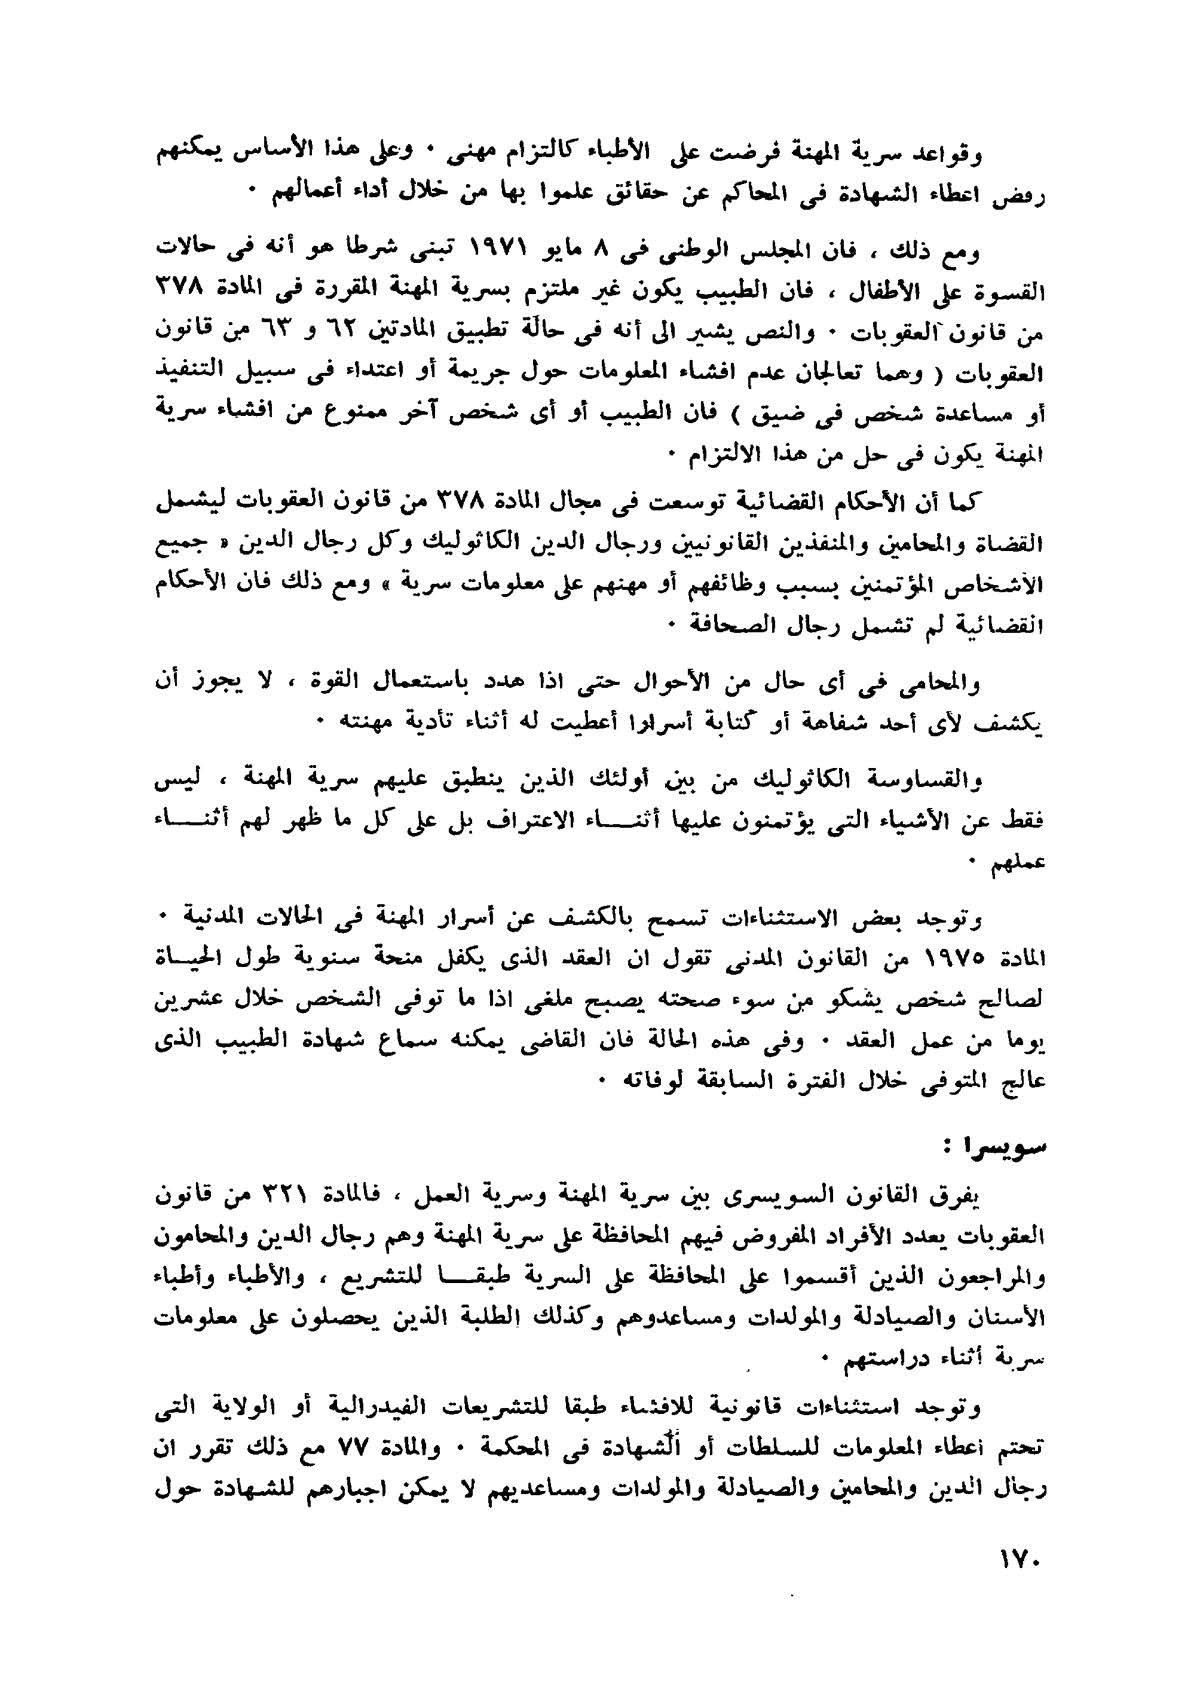 وقواعد سرية المهنة فرضت على الأطباء كالتزام مهنى ٠ وعلى هذا الأساس يمكنهم
رفض اعطاء الشهادة فى المحاكم عن حقائق علموا بها من خلال أداء أعمالهم ٠
ومع ذلك ، فان المجلس الوطنى فى ٨ مايو ١٩٧١ تبنى شرطا هو أنه فى حالات
القسوة على الأطفال ، فان الطبيب يكون غير ملتزم بسرية المهنة المقررة فى المادة ٣٧٨
من قانون العقوبات ٠ والنص يشير الى أنه فى حالة تطبيق المادتين ٦٢ و ٦٣ من قانون
العقوبات ( وهما تعالجان عدم افشاء المعلومات حول جريمة أو اعتداء فى سبيل التنفيذ
أو مساعدة شخص فى ضيق ) فان الطبيب أو أى شخص آخر ممنوع من افشاء سرية
المهنة يكون فى حل من هذا الالتزام ٠
كما أن الأحكام القضائية توسعت فى مجال المادة ٣٧٨ من قانون العقوبات ليشمل
القضاة والمحامين والمنفذين القانونيين ورجال الدين الكاثوليك وكل رجال الدين « جميع
الأشخاص المؤتمنين بسبب وظائفهم أو مهنهم على معلومات سرية » ومع ذلك فان الأحكام
القضائية لم تشمل رجال الصحافة ٠
والمحامى فى أى حال من الأحوال حتى اذا هدد باستعمال القوة ، لا يجوز أن
يكشف لأى أحد شفاهة أو كتابة أسرارا أعطيت له أثناء تأدية مهنته ٠
والقساوسة الكاثوليك من بين أولئك الذين ينطبق عليهم سرية المهنة ، ليس
فقط عن الأشياء التى يؤتمنون عليها أثنـــاء الاعتراف بل على كل ما ظهر لهم أثنـــاء
عملهم ٠
وتوجد بعض الاستثناءات تسمح بالكشف عن أسرار المهنة فى الحالات المدنية ٠
المادة ١٩٧٥ من القانون المدنى تقول ان العقد الذى يكفل منحة سنوية طول الحيـاة
لصالح شخص يشكو من سوء صحته يصبح ملغى اذا ما توفى الشخص خلال عشرين
يوما من عمل العقد ٠ وفى هذه الحالة فان القاضى يمكنه سماع شهادة الطبيب الذى
عالج المتوفى خلال الفترة السابقة لوفاته ٠
سويسرا :
يفرق القانون السويسرى بين سرية المهنة وسرية العمل ، فالمادة ٣٢١ من قانون
العقوبات يعدد الأفراد المفروض فيهم المحافظة على سرية المهنة وهم رجال الدين والمحامون
والمراجعون الذين أقسموا على المحافظة على السرية طبقـــا للتشريع ، والأطباء وأطباء
الأسنان والصيادلة والمولدات ومساعدوهم وكذلك الطلبة الذين يحصلون على معلومات
سرية أثناء دراستهم ٠
وتوجد استثناءات قانونية للافشاء طبقا للتشريعات الفيدرالية أو الولاية التى
تحتم اعطاء المعلومات للسلطات أو الشهادة فى المحكمة ٠ والمادة ٧٧ مع ذلك تقرر ان
رجال الدين والمحامين والصيادلة والمولدات ومساعديهم لا يمكن اجبارهم للشهادة حول
١٧٠